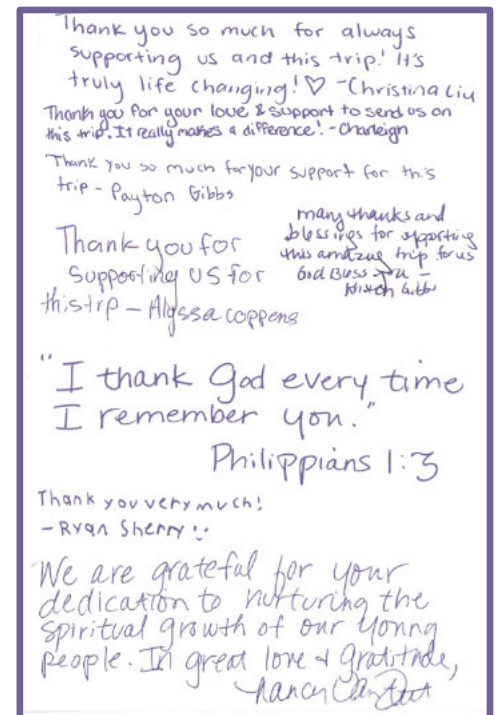 Thank you so much for always
supporting us and this trip! It's
truly life changing! ♡ -Christina Liu
Thank you for your love & support to send us on
this trip. It really makes a difference! - Charleigh
Thank you so much for your support for this
trip - Payton Gibbs
Thank you for
supporting us for
this trip - Alyssa coppens
many thanks and
blessings for supporting
this amazing trip for us
God Bless You -
Gibbs
"I thank God every time
I remember you."
Philippians 1:3
Thank you very much!
- Ryan Sherry :)
We are grateful for your
dedication to nurturing the
spiritual growth of our young
people. In great love & gratitude,
Nancy